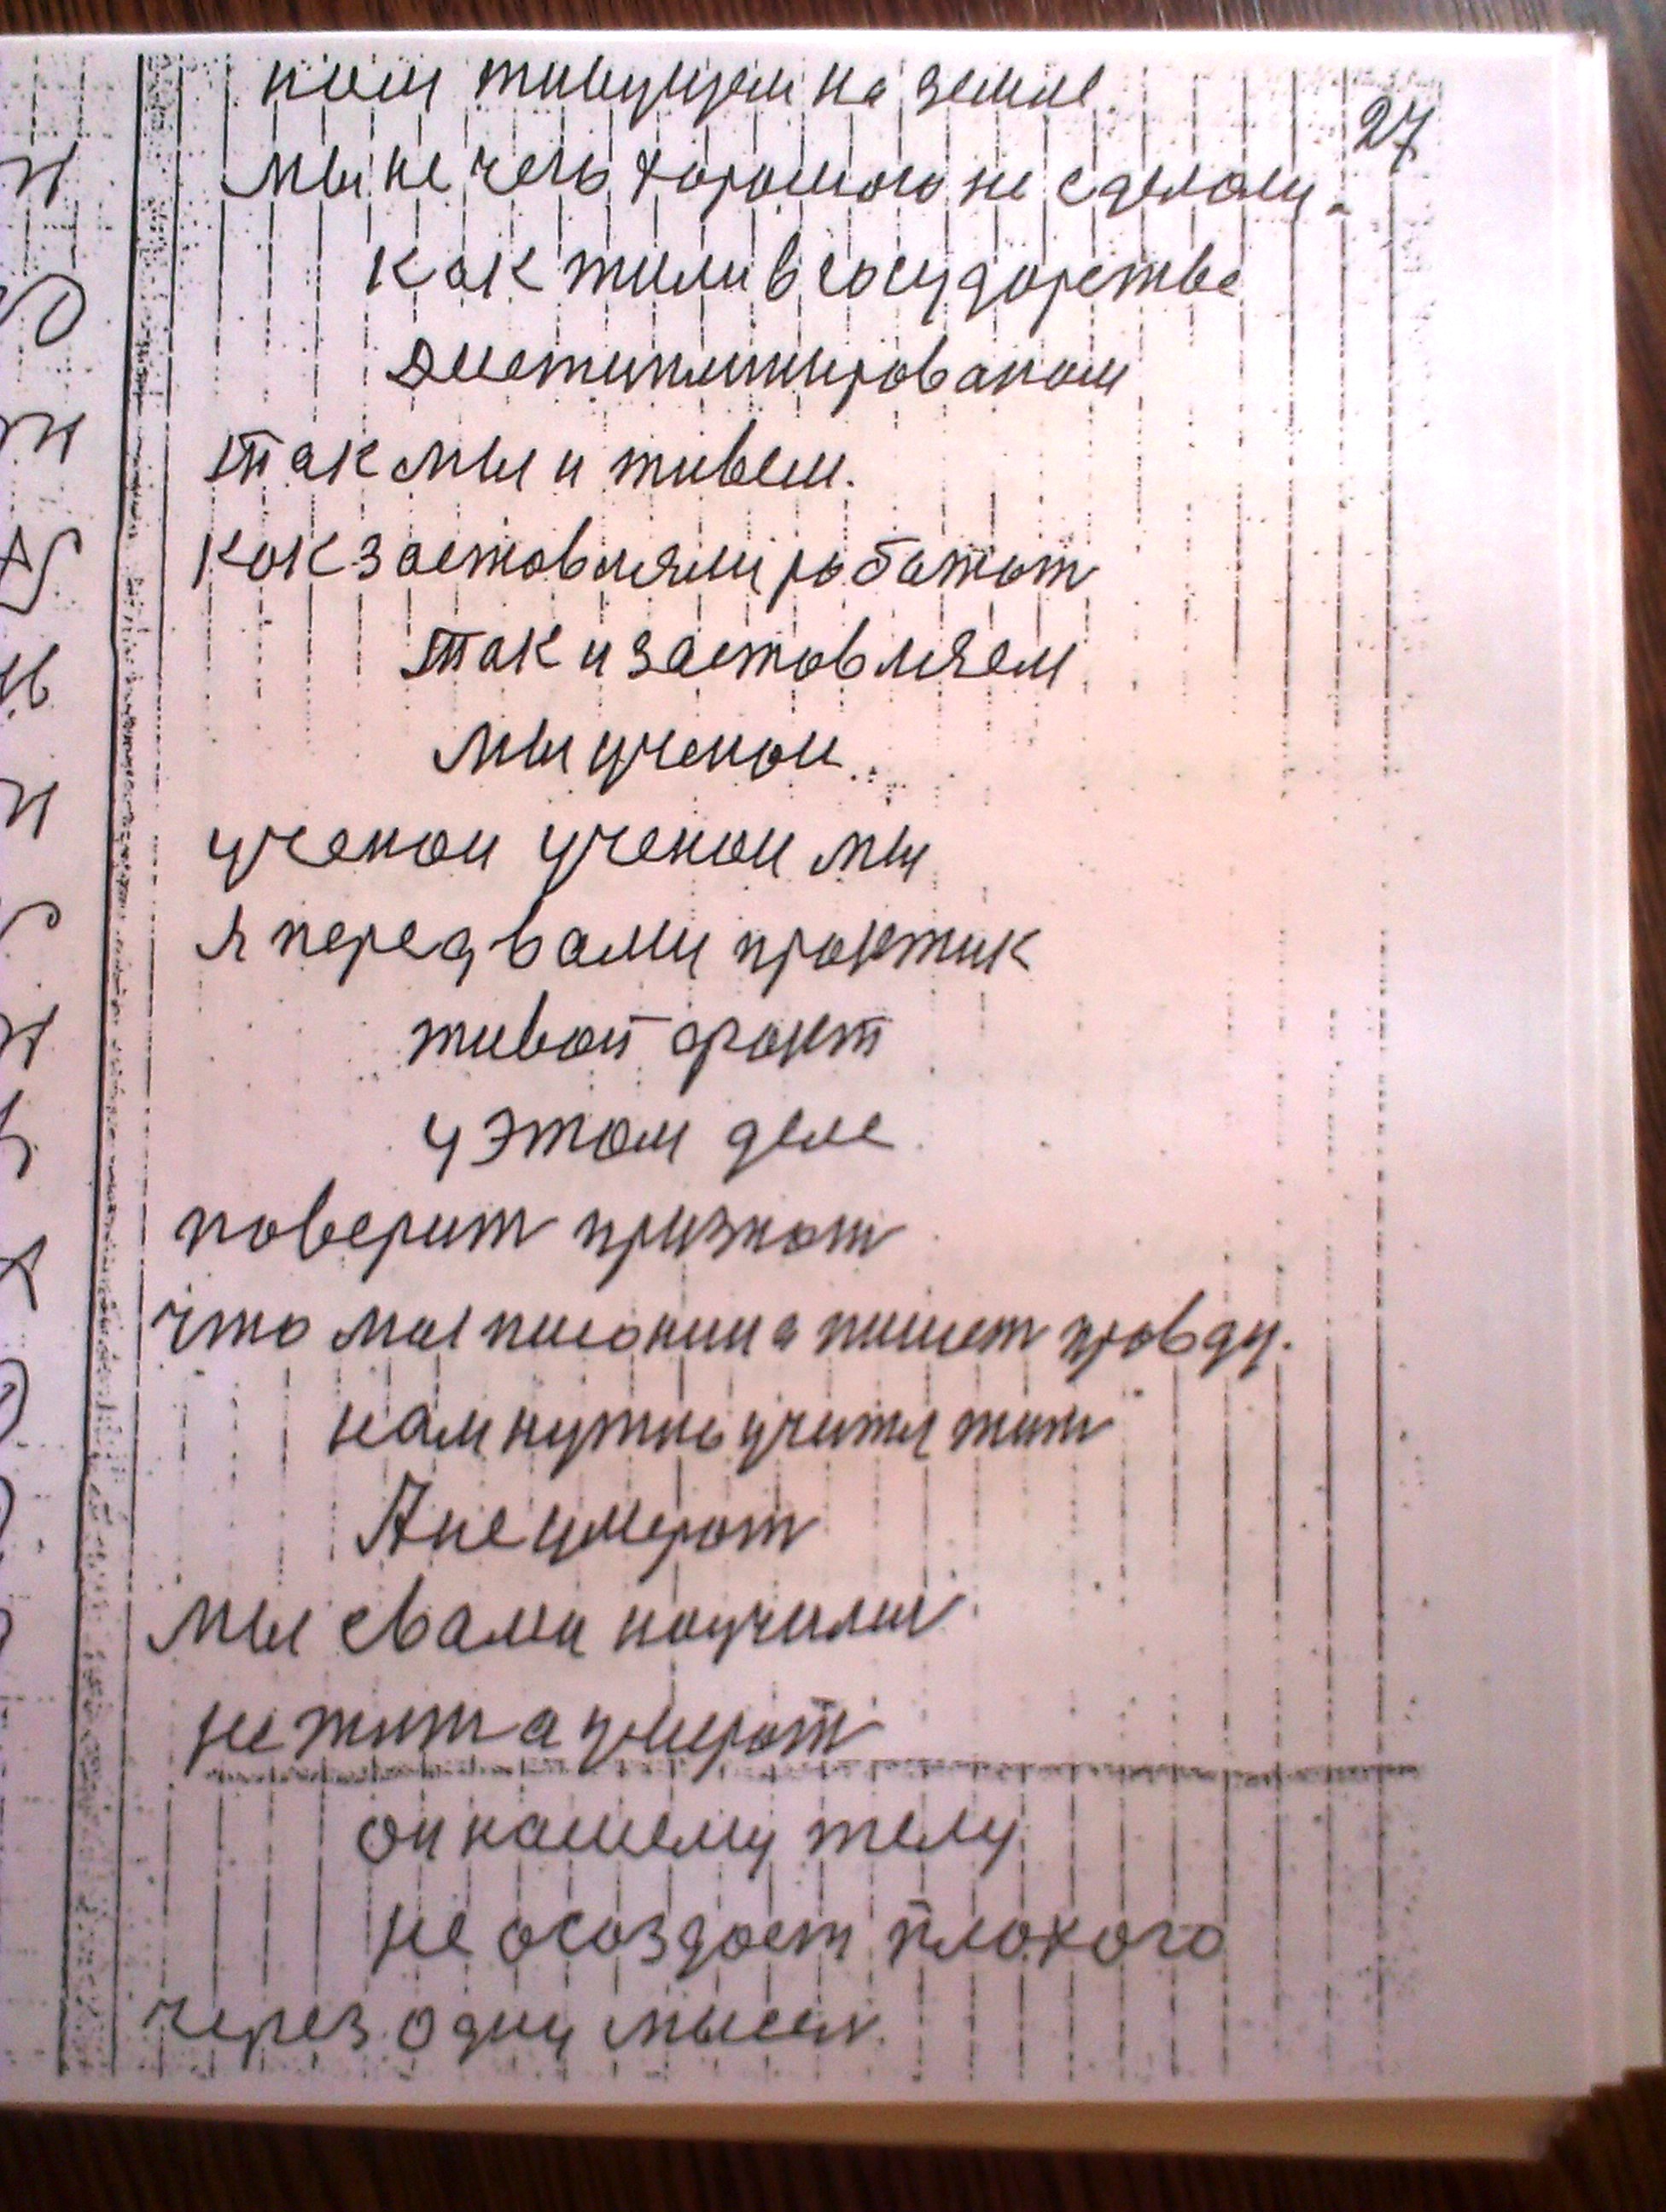 ним живущем на земле.
27
Мы не чего хорошого не сделали.
Как жили в государстве
дистиплинированом
так мы и живем.
Как заставляли работат
так и заставляем
Мы ученои
ученои ученои мы
Я перед вами практик
живой факт
у этом деле
поверит признат
что мне писанина пишет правду.
нам нужно учится жит
А не умерат
Мы с вами научилис
не жит а умерат
он нашему телу
не осоздает плохого
через одну мысел